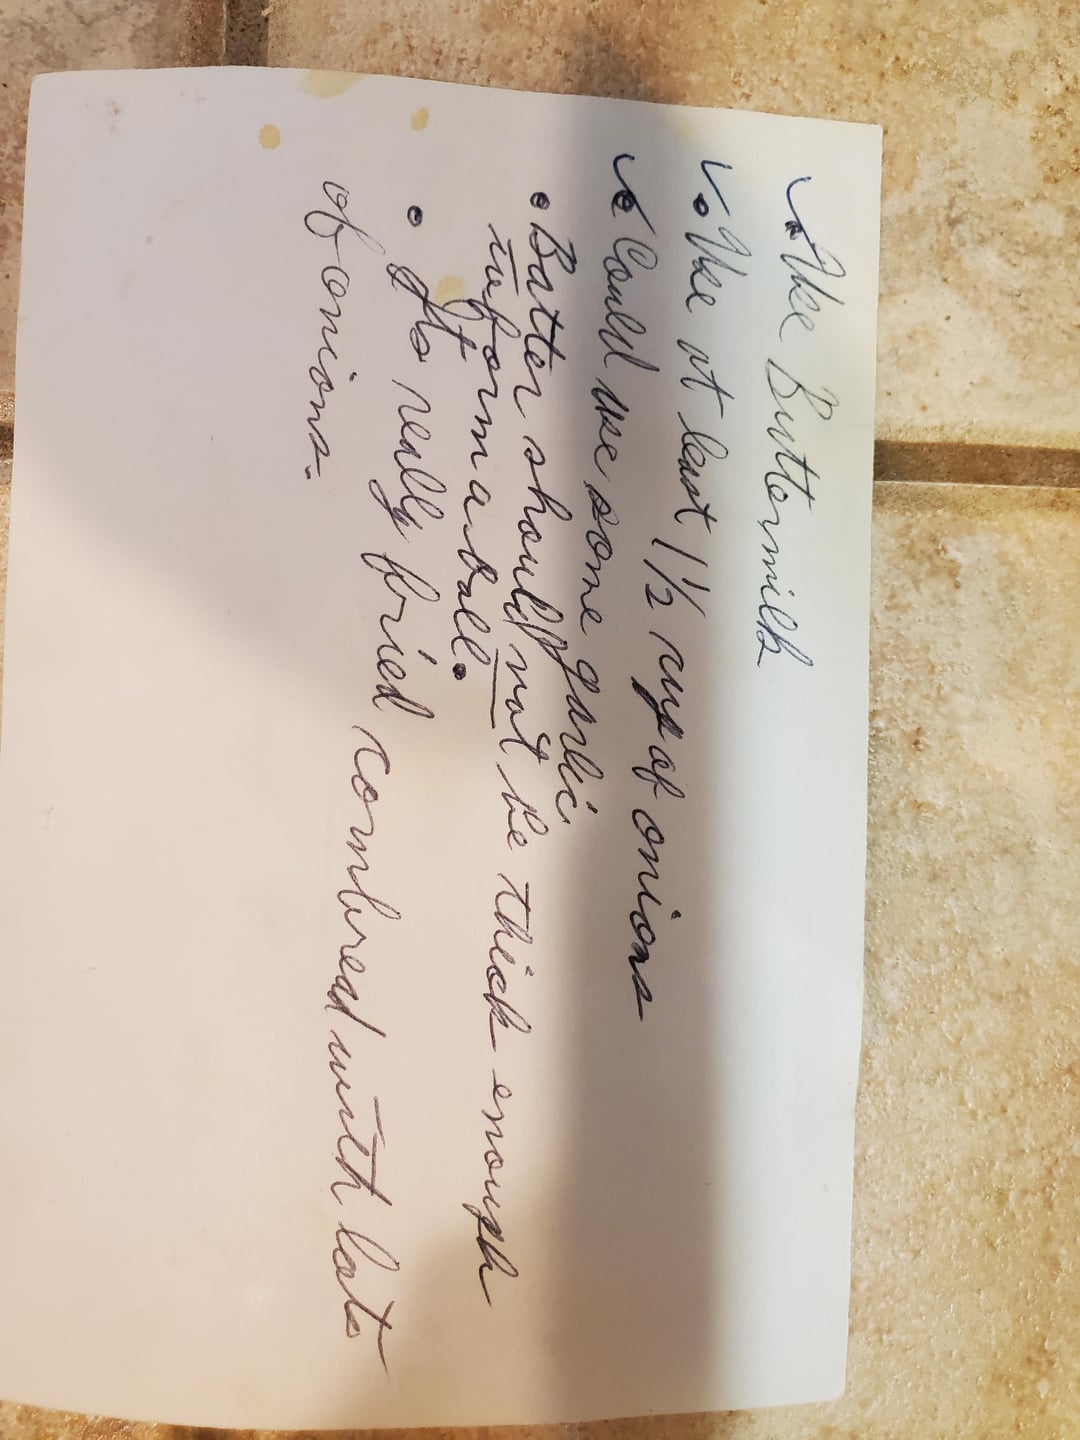 ✓• Use Buttermilk
✓• Use at least 1 1/2 cup of onions
✓• Could use some garlic
• Batter should not be thick enough
to form a ball.
• Its really fried cornbread with lots
of onions.